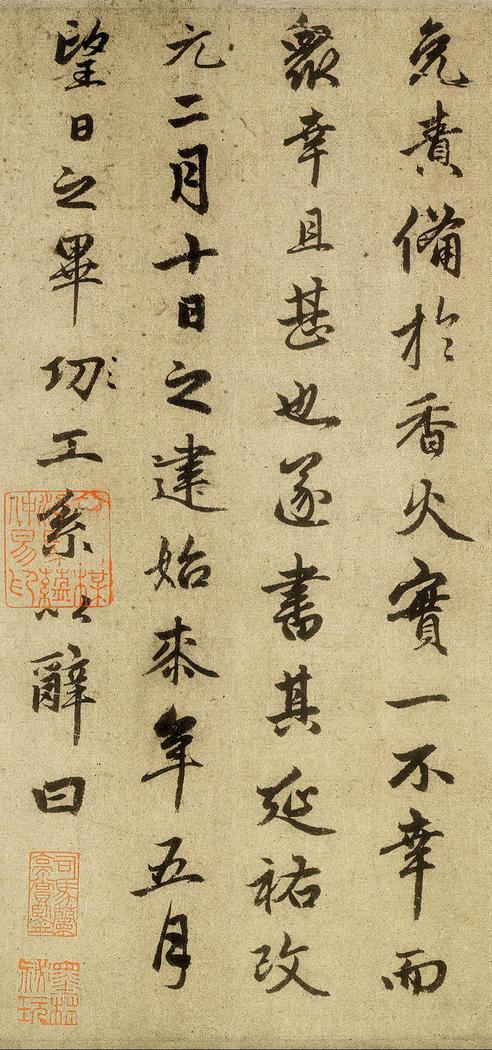 免責備於香火實一不幸而
衆幸且甚也遂書其延祐改
元二月十日之建始来年五月
望日之畢功〻工索以辭曰
墨林祕玩